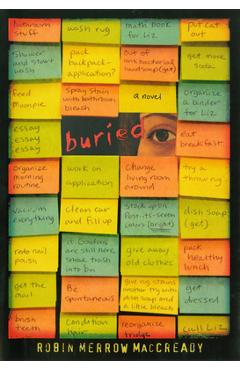 bathroom stuff
wash rug
math book for Liz
put cat out
shower and start wash
pack backpack- application?
out of anti bacterial hand soap (get)
get more soda
feed Moonpie
spray stain with bathroom bleach
a novel
organize a binder for Liz
essay
essay
essay
buried
eat breakfast
organize morning routine
work on application
change living room around
try a throw rug
vacuum everything
clean car and fill up
stock up on Post-its-seven colors (bright)
dish soap (get)
roto nail polish
if Goodens are still here sneak trash into bin
give away old clothes
pack healthy lunch
get the mail
Be spontaneous
give rug stains another try with dish soap and a little bleach
get dressed
brush teeth
condition hair
reorganize fridge
call Liz
ROBIN MERROW MACCREADY